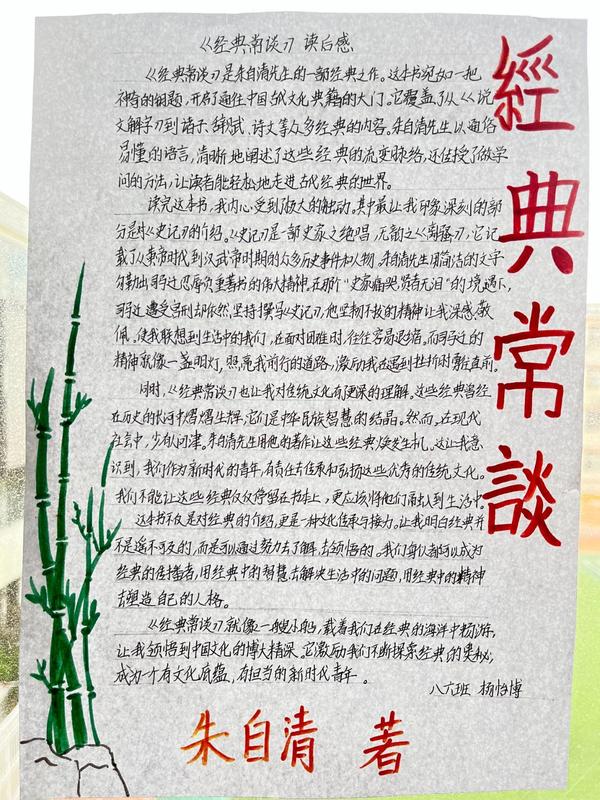 《经典常谈》读后感
《经典常谈》是朱自清先生的一部经典之作。这本书宛如一把
神奇的钥匙，开启了通往中国古代文化典籍的大门。它覆盖了从《说
文解字》到诸子、辞赋、诗文等众多经典的内容。朱自清先生以通俗
易懂的语言，清晰地阐述了这些经典的流变脉络，还传授了做学
问的方法，让读者能轻松地走进古代经典的世界。
读完这本书，我内心受到极大的触动。其中最让我印象深刻的部
分是对《史记》的介绍。《史记》是一部史家之绝唱，无韵之《离骚》，它记
载了从黄帝时代到汉武帝时期的众多历史事件和人物。朱自清先生用简洁的文字
勾勒出司马迁忍辱负重著书的伟大精神。在那个“史家痛哭，贤者无泪”的境遇下，
司马迁遭受宫刑却依然坚持撰写《史记》，他坚韧不拔的精神让我深感敬
佩。使我联想到生活中的我们，在面对困难时，往往容易退缩。而司马迁的
精神就像一盏明灯，照亮我前行的道路，激励我在遇到挫折时勇往直前。
同时，《经典常谈》也让我对传统文化有了更深的理解。这些经典曾经
在历史的长河中熠熠生辉，它们是中华民族智慧的结晶。然而，在现代
社会中，少有人问津。朱自清先生用他的著作让这些经典焕发生机。这让我意
识到，我们作为新时代的青年，有责任去传承和弘扬这些优秀的传统文化。
我们不能让这些经典仅仅停留在书本上，更应该将他们融入到生活中。
这本书不仅是对经典的介绍，更是一种文化传承与接力。让我明白经典并
不是遥不可及的，而是可以通过努力去了解，去领悟的。我们每个人都可以成为
经典的传播者，用经典中的智慧去解决生活中的问题，用经典中的精神
去塑造自己的人格。
《经典常谈》就像一艘小船，载着我们在经典的海洋中畅游，
让我领悟到中国文化的博大精深。它激励我们不断探索经典的奥秘，
成为一个有文化底蕴，有担当的新时代青年。
八六班 杨怡博
經典常談
朱自清 著